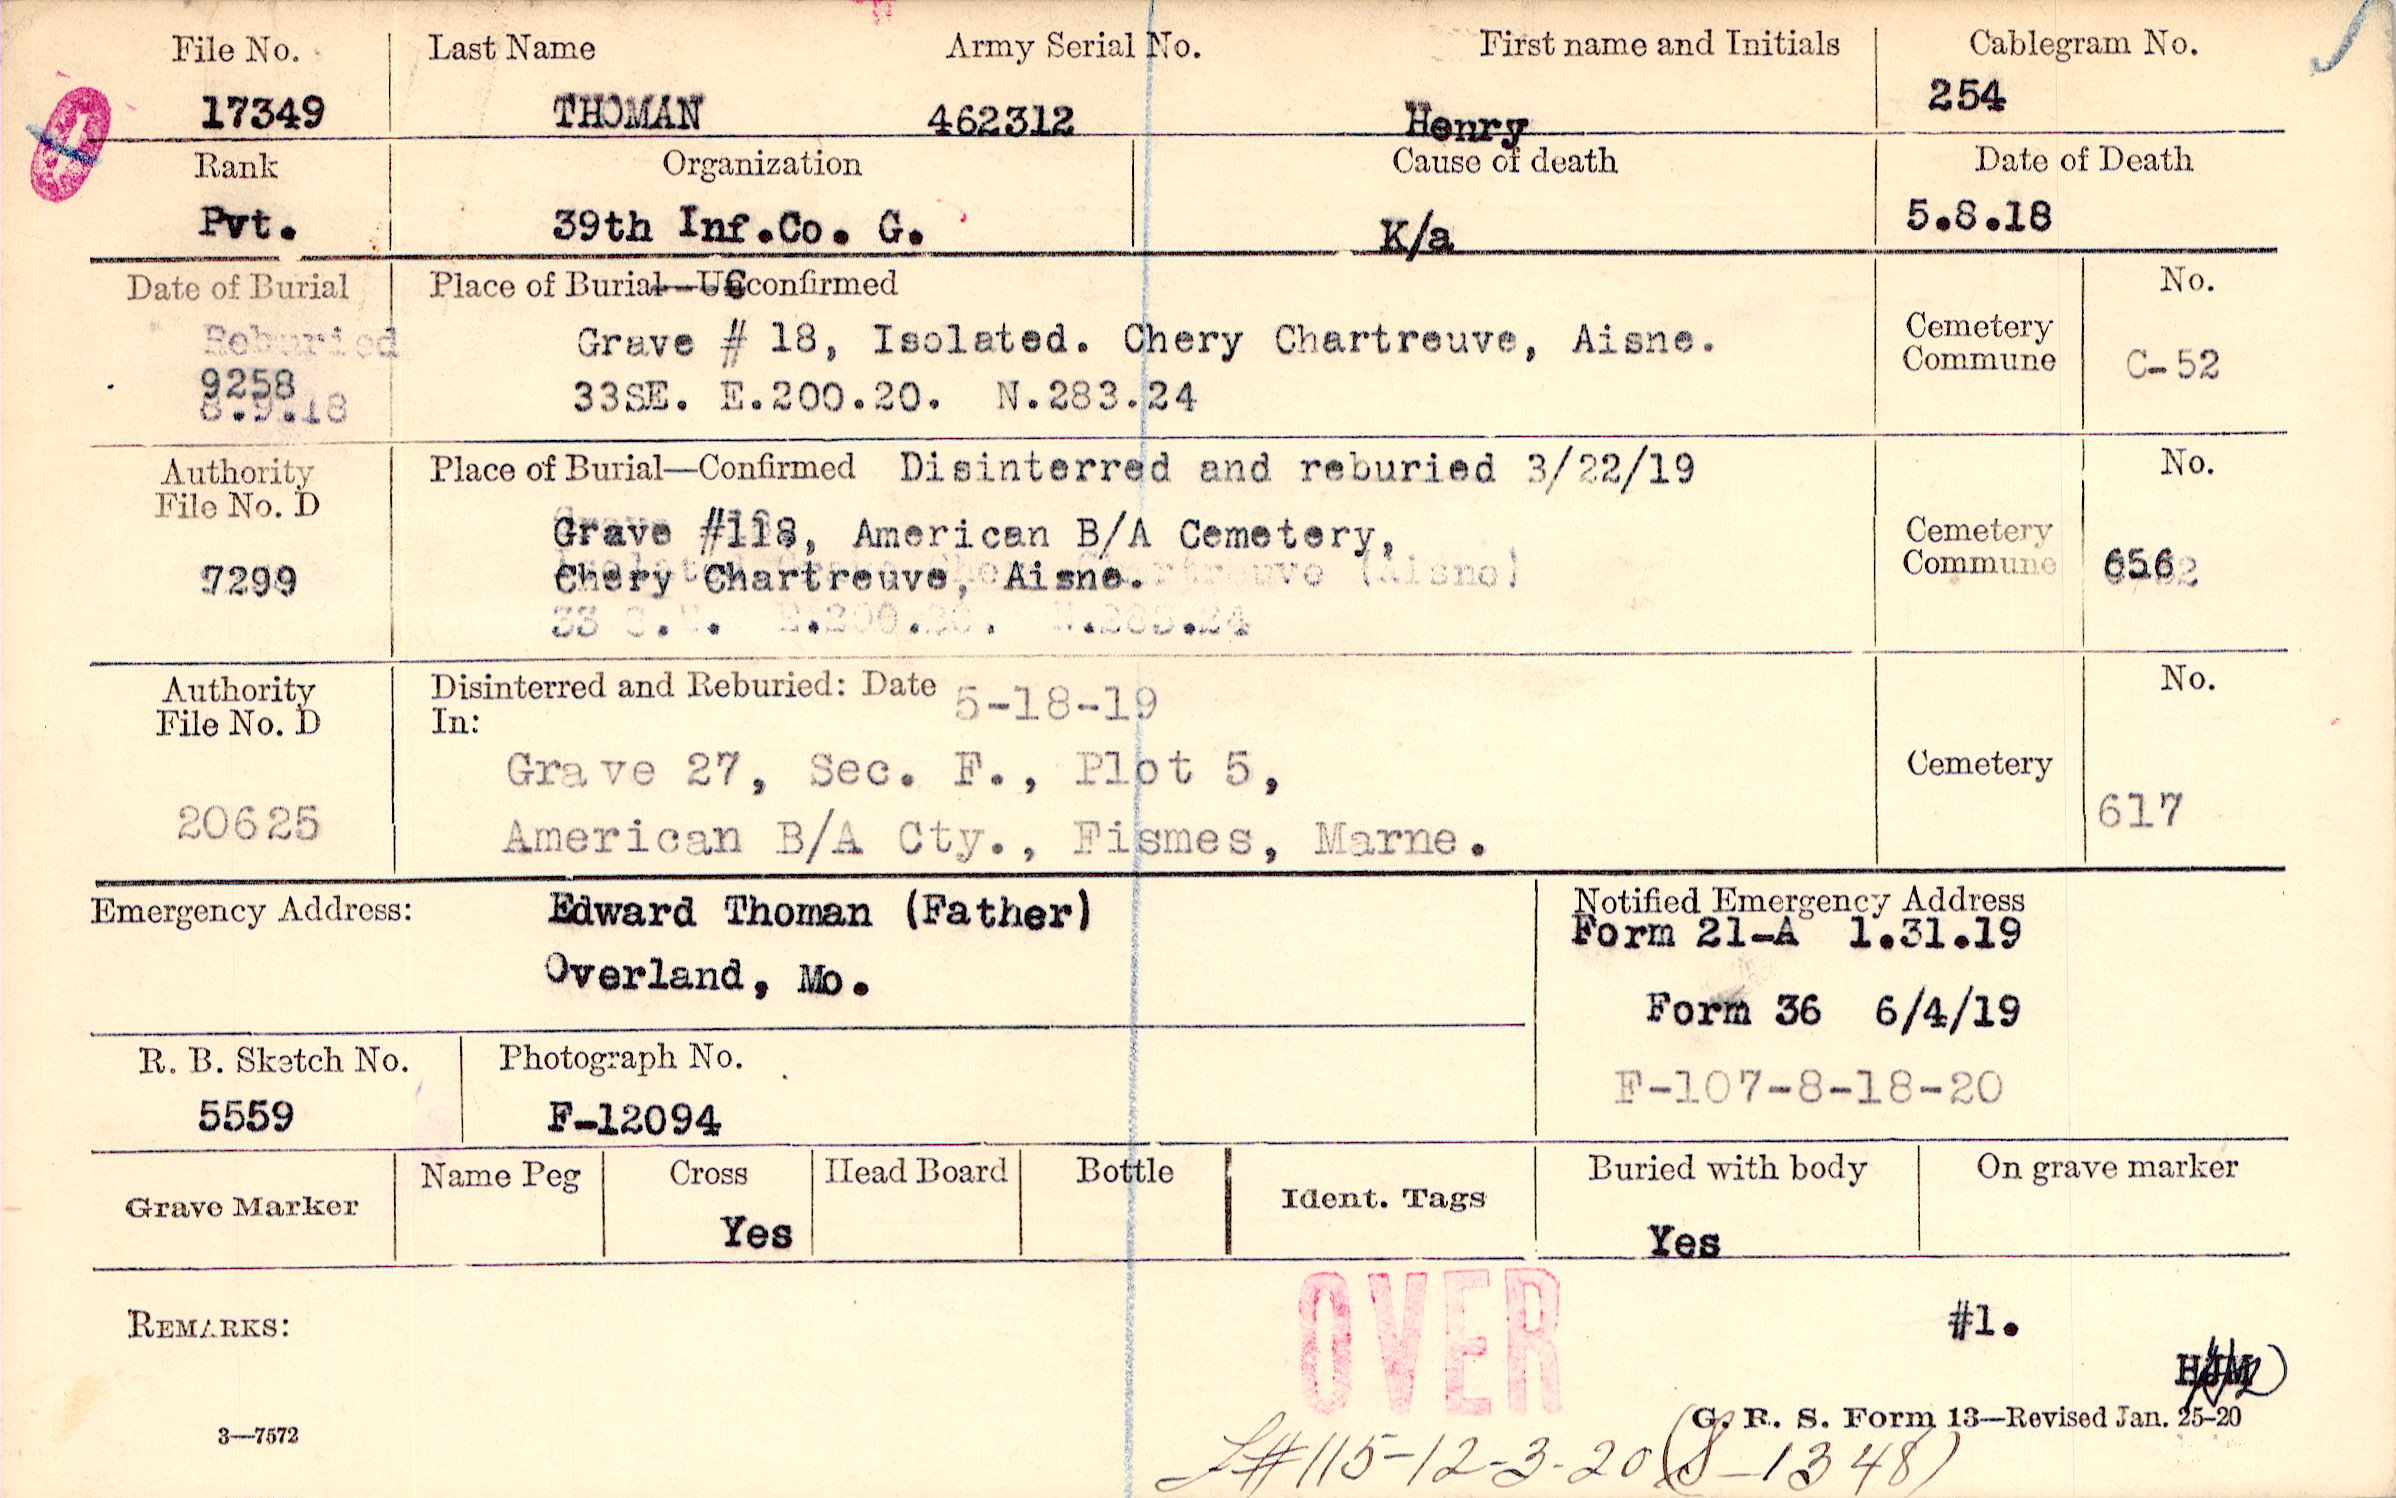 File No. Last Name Army Serial No. First name and Initials Cablegram No.
17349 THOMAN 462312 Henry 254
Rank Organization Cause of death Date of Death
Pvt. 39th Inf.Co. G. K/a 5.8.18
Date of Burial Place of Burial—Unconfirmed No.
Reburied Grave # 18, Isolated. Chery Chartreuve, Aisne. Cemetery
Commune C-52
9258 33SE. E.200.20. N.283.24
8.9.18
Authority Place of Burial—Confirmed Disinterred and reburied 3/22/19 No.
File No. D
Grave #118, American B/A Cemetery, Cemetery
7299 Chery Chartreuve, Aisne. Commune 656
33 S.E. E.200.20. N.283.24
Authority Disinterred and Reburied: Date 5-18-19 No.
File No. D In:
Grave 27, Sec. F., Plot 5, Cemetery
20625 American B/A Cty., Fismes, Marne. 617
Emergency Address: Edward Thoman (Father) Notified Emergency Address
Form 21-A 1.31.19
Overland, Mo.
Form 36 6/4/19
R. B. Sketch No. Photograph No. F-107-8-18-20
5559 F-12094
Grave Marker Name Peg Cross Head Board Bottle Ident. Tags Buried with body On grave marker
Yes Yes
OVER
REMARKS: #1.
HJM
3—7572 G. R. S. Form 13—Revised Jan. 25-20
L#115-12-3-20 (S-1348)